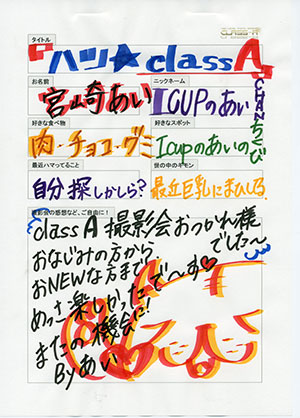 タイトル
『ハツ☆classA
お名前
宮崎あい
ニックネーム
ICUPのあい
好きな食べ物
肉・チョコ・グミ
好きなスポット
Icupのあいの
ちくび
最近ハマってること
自分探しかしら?
世の中のギモン
撮影会の感想など、ご自由に!
classA撮影会おつかれ様
でした〜
おなじみの方から
おNEWな方まで
めっさ楽しかったで〜す♡
またの機会に!
Byあい